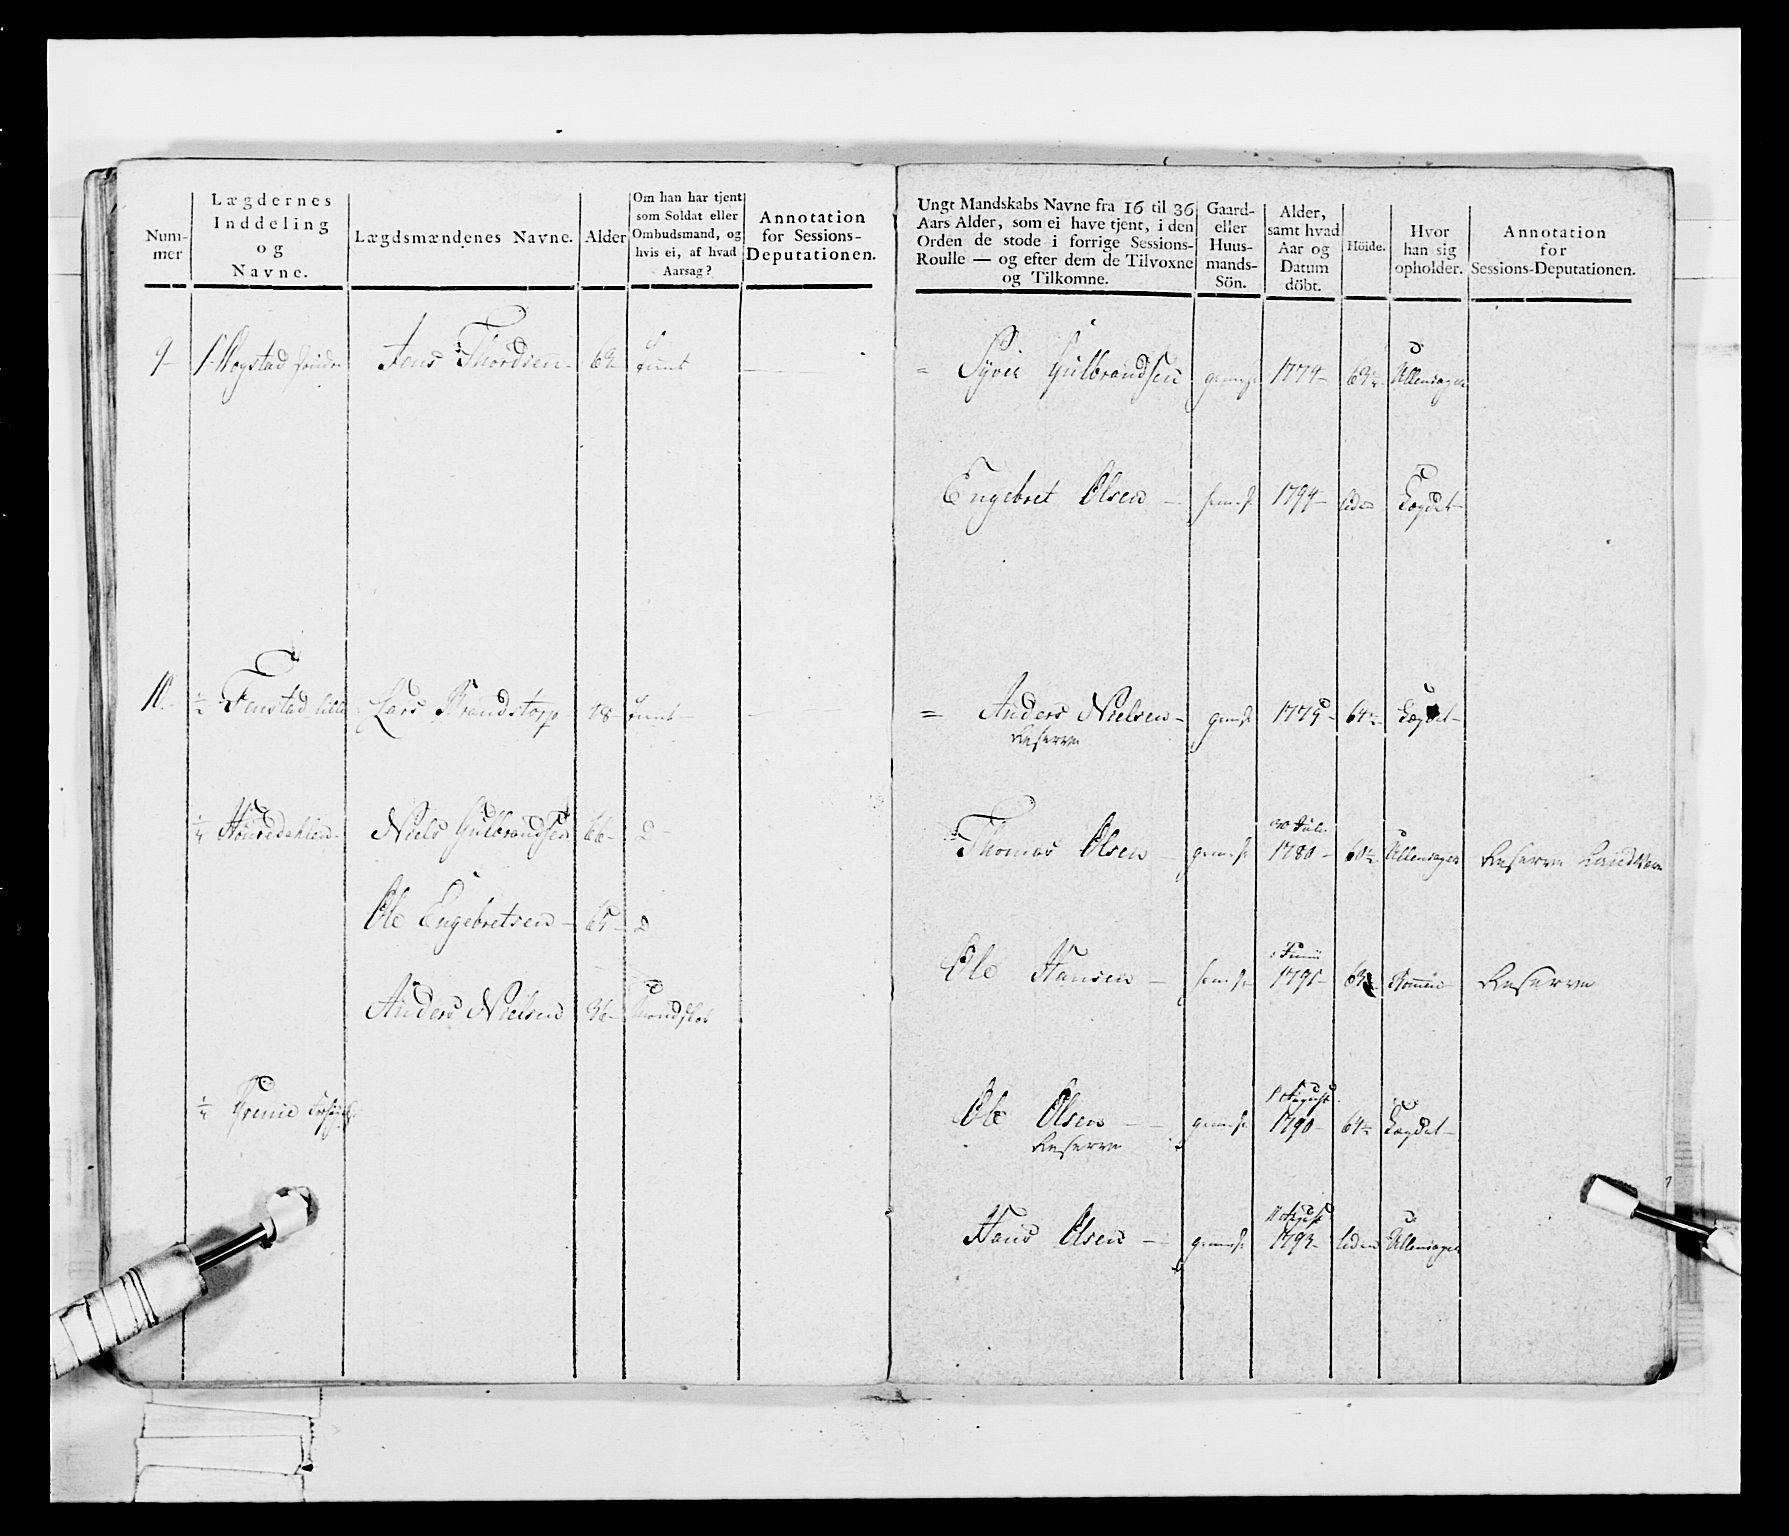 Num-
mer
Lægdernes
Inddeling
og
Navne.
Lægdsmændenes Navne.
Alder
Om han har tjent
som Soldat eller
Ombudsmand, og
hvis ei, af hvad
Aarsag?
Annotation
for Sessions-
Deputationen.
9 1 Hogstad søndre Jens Thordsen 62 tient
10 ½ Fenstad lille Lars Brandstorp 48 tient
¼ Niels Gulbrandsen 66 d
Ole Engebretsen 65 d
Anders Nielsen 36
¼
Ungt Mandskabs Navne fra 16 til 36
Aars Alder, som ei have tjent, i den
Orden de stode i forrige Sessions-
Roulle — og efter dem de Tilvoxne
og Tilkomne.
Gaard-
eller
Huus-
mands-
Sön.
Alder,
samt hvad
Aar og
Datum
döbt.
Höide.
Hvor
han sig
opholder.
Annotation
for
Sessions-Deputationen.
Syver Gulbrandsen 1774 Ullensager
Engebret Olsen 1794 liden Lægdet
Anders Nielsen 1775 64 Lægdet
Reserve
30 Juli
Thomas Olsen 1780 60½ Ullensager Reserve Landværn
Junii
Ole Hansen 1791 Reserve
1 August
Ole Olsen 1790 64 Lægdet
Reserve
11 August
Hans Olsen 1793 liden Ullensager